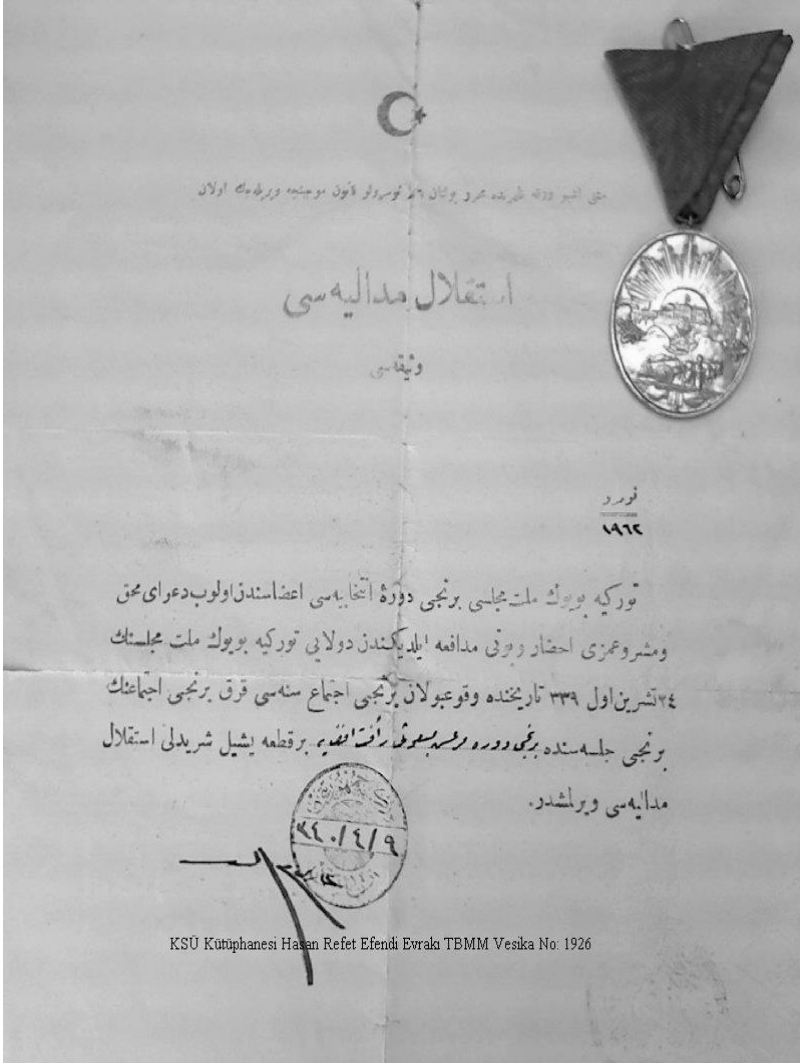 متنی اشبو ورقه ظهرنده محرر بولنان ٦٨ نومرولو قانون موجبنجه ویریله‌جك اولان
استقلال مدالیه‌سی
وثیقه‌سی
نومرو
١٩٦٢
توركیه بویوك ملت مجلسی برنجی دورهٔ انتخابیه‌سی اعضاسندن اولوب دعوای محق
ومشروعمزی احضار وبونی مدافعه ایلدیكندن دولایی توركیه بویوك ملت مجلسنك
٢٤ تشرین اول ٣٣٩ تاریخنده وقوعبولان برنجی اجتماع سنه‌سی قرق برنجی اجتماعنك
برنجی جلسه‌سنده برنجی دوره مرعش مبعوثی رأفت افندی یه برقطعه یشیل شریدلی استقلال
مدالیه‌سی ویرلمشدر.
٣٤٠/٤/٩
KSÜ Kütüphanesi Hasan Refet Efendi Evrakı TBMM Vesika No: 1926